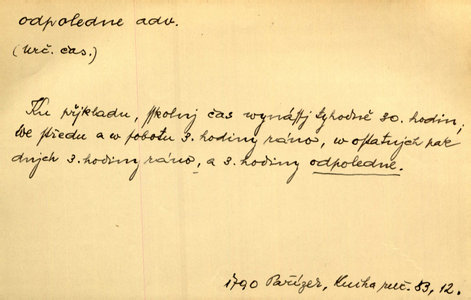 odpoledne adv.
(urč. čas.)
Ku přjkladu, sskolnj čas wynássj tyhodně 30. hodin,
we středu a w sobotu 3. hodiny ráno, w ostatnjch pak
dnjch 3. hodiny ráno, a 3. hodiny odpoledne.
1790 Pařízek, Kniha ruč. 83, 12.